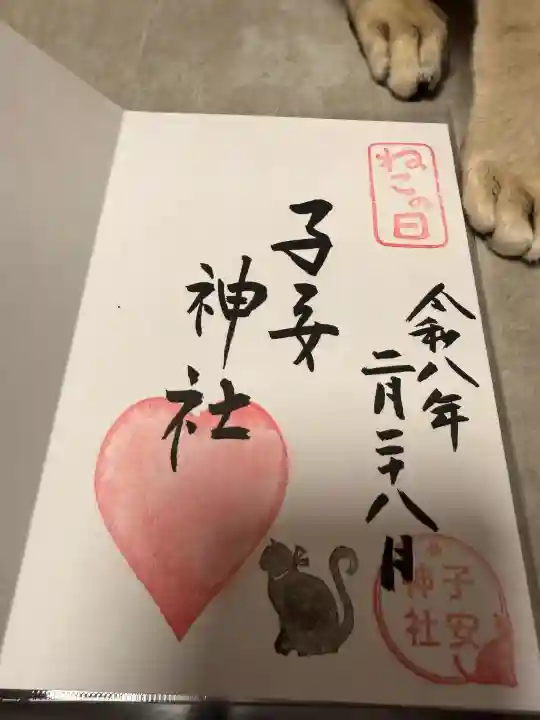 ねこの日
令和八年
二月二十八月
子安
神社
子安
神社